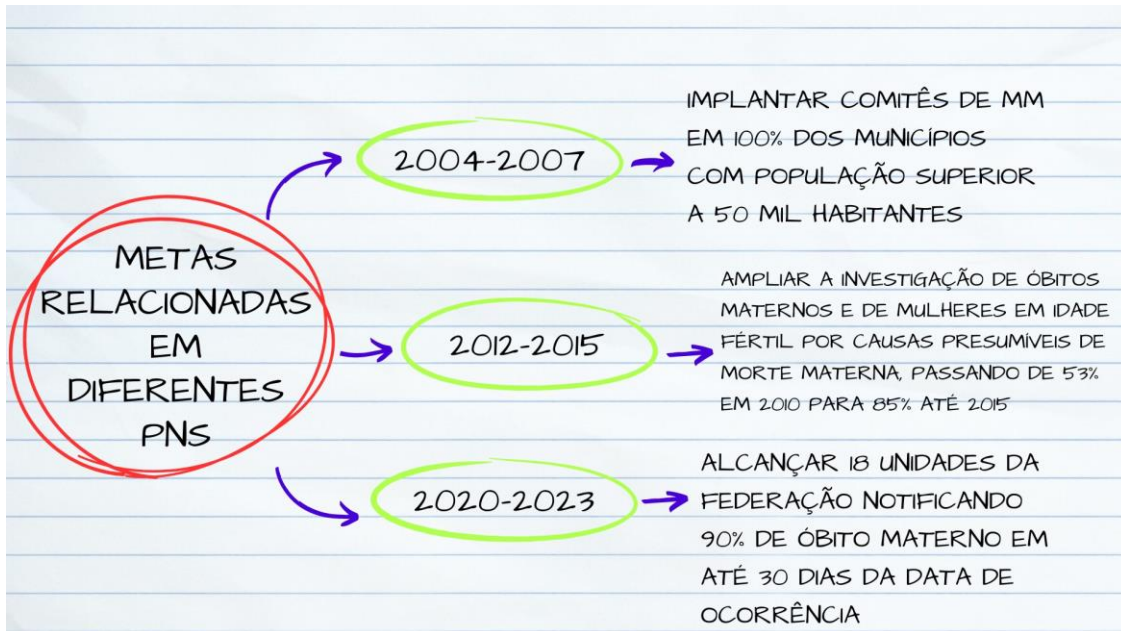 METAS
RELACIONADAS
EM
DIFERENTES
PNS
2004-2007
IMPLANTAR COMITÊS DE MM
EM 100% DOS MUNICÍPIOS
COM POPULAÇÃO SUPERIOR
A 50 MIL HABITANTES
2012-2015
AMPLIAR A INVESTIGAÇÃO DE ÓBITOS
MATERNOS E DE MULHERES EM IDADE
FÉRTIL POR CAUSAS PRESUMÍVEIS DE
MORTE MATERNA, PASSANDO DE 53%
EM 2010 PARA 85% ATÉ 2015
2020-2023
ALCANÇAR 18 UNIDADES DA
FEDERAÇÃO NOTIFICANDO
90% DE ÓBITO MATERNO EM
ATÉ 30 DIAS DA DATA DE
OCORRÊNCIA